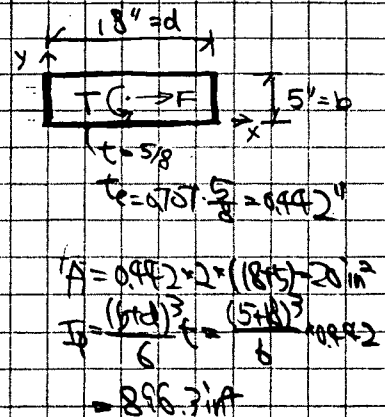 18" = d
y
T → F
5" = b
x
t = 5/8
te = 0.707 · 5/8 = 0.442"
A = 0.442 * 2 * (18+5) = 20 in²
Ip = (b+d)³/6 t = (5+18)³/6 * 0.442
= 896.3 in⁴